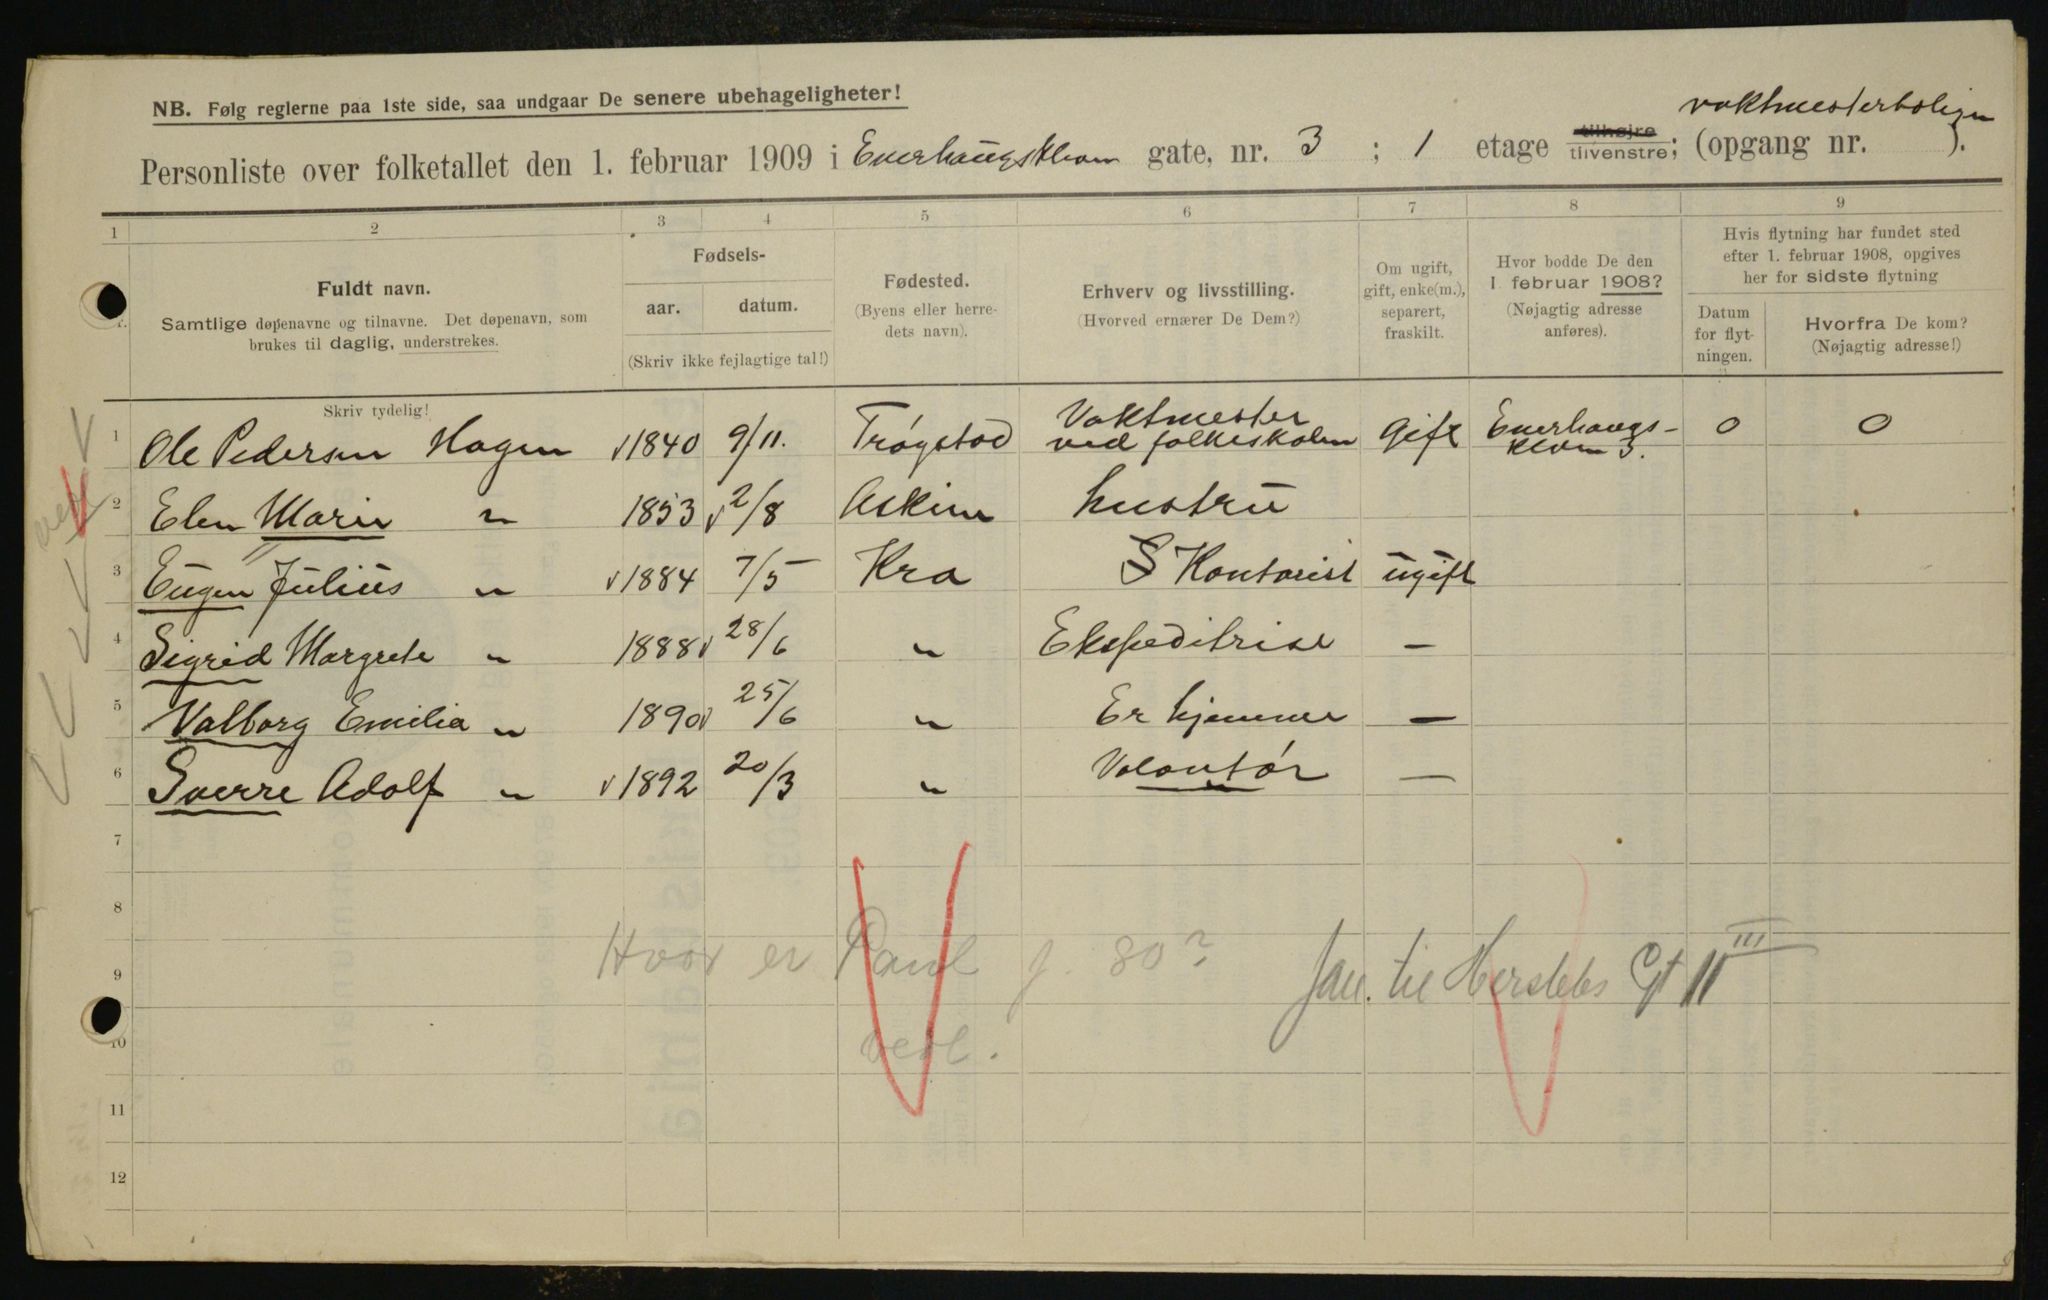 NB. Følg reglerne paa 1ste side, saa undgaar De senere ubehageligheter!
vaktmesterboligen
Personliste over folketallet den 1. februar 1909 i Enerhaugsklem gate, nr. 3 ; 1 etage tilhøjre tilvenstre; (opgang nr. ).
1 2 3 4 5 6 7 8 9
Fuldt navn.
Samtlige døpenavne og tilnavne. Det døpenavn, som
brukes til daglig, understrekes.
Fødsels-
aar. datum.
(Skriv ikke fejlagtige tal!)
Fødested.
(Byens eller herre-
dets navn).
Erhverv og livsstilling.
(Hvorved ernærer De Dem?)
Om ugift,
gift, enke(m.),
separert,
fraskilt.
Hvor bodde De den
1. februar 1908?
(Nøjagtig adresse
anføres).
Hvis flytning har fundet sted
efter 1. februar 1908, opgives
her for sidste flytning
Datum
for flyt-
ningen.
Hvorfra De kom?
(Nøjagtig adresse!)
Skriv tydelig!
1 Ole Pedersen Hagen 1840 9/11. Trøgstad Vaktmester ved folkeskolen Gift Enerhaugs- klem 3. 0 0
2 Elen Marie " 1853 2/8 Askim hustru
3 Eugen Julius " 1884 7/5 Kra S Kontorist ugift
4 Sigrid Margrete " 1888 28/6 " Ekspeditrise —
5 Valborg Emilia " 1890 25/6 " Er hjemme —
6 Sverre Adolf " 1892 20/3 " Volontør —
7
8
9 Hvor er Paul f. 80? Jan. til Herslebs Gt 11 III
10
11
12